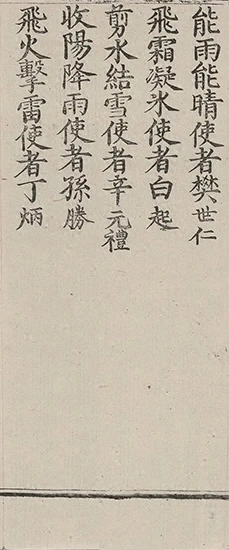 能雨能晴使者樊世仁
飛霜凝氷使者白起
剪水結雪使者辛元禮
收陽降雨使者孫勝
飛火擊雷使者丁炳